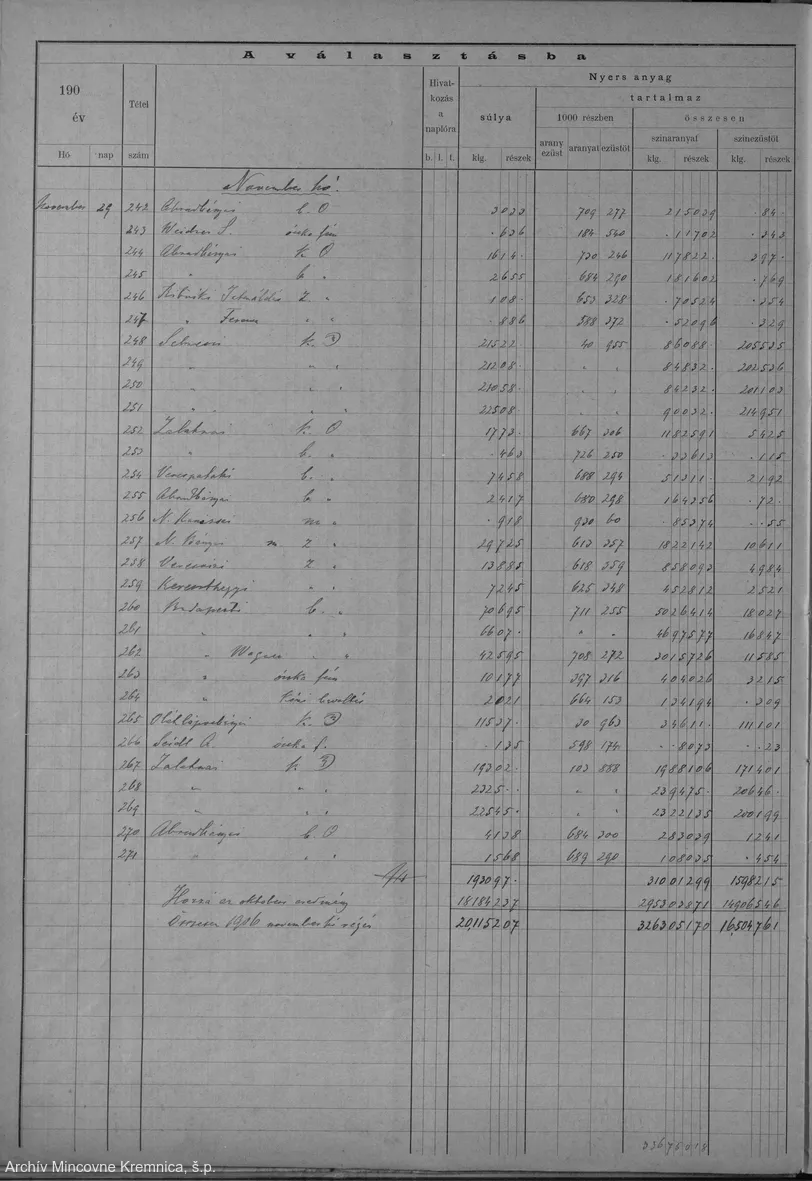 A választásba
190
év
Hó nap
Tétel
szám
Hivat-
kozás
a
naplóra
b. l. f.
Nyers anyag
súlya
klg. részek
tartalmaz
1000 részben
arany
ezüst
aranyat ezüstöt
összesen
színaranyat
klg. részek
színezüstöt
klg. részek
November hó.
November 29 242 Abrudbányai b. O 3033 709 277 215029 . 84 .
243 Weidner S. ócska fém . 636 184 540 . 11702 . 343
244 Abrudbányai k. O 1614 . 730 246 117822 . 397 .
245 " b. " 2655 684 290 181602 . 769
246 Z. " 108 . 653 328 . 70524 . 354
247 " " " . 886 588 372 . 52096 . 329
248 k. 21522 40 955 86088 . 205535
249 " " " 21208 . " " 84832 . 202536
250 " " " 21058 . " " 84232 . 201103
251 " " " 22508 . " " 90032 . 214951
252 Zalatnai k. O 1773 . 667 306 1182591 5425
253 " b. " . 463 726 250 . 33613 . 115
254 Verespataki b. " 7458 688 294 51311 . 2192
255 Abrudbányai b. " 2417 680 298 164356 . 72 .
256 m. " . 918 930 60 . 85374 . . 55
257 N. Bányai m. Z " 29725 613 357 1822142 10611
258 Z " 13885 618 359 858093 4984
259 " " 7245 625 348 452812 2521
260 Budapesti b. " 70695 711 255 5026414 18027
261 " " " 6607 . " " 4697577 16847
262 " Wagner " " 42595 708 272 3015726 11585
263 " ócska fém 10177 397 316 404026 3215
264 " 2021 664 153 134194 . 309
265 Oláhláposbányai k. 11537 . 30 963 34611 . 111101
266 Seidl A. ócska f. . 135 598 174 . . 8073 . . 23
267 Zalatnai k. 19302 . 103 888 1988106 171401
268 " " " 2325 . " " 239475 . 20646 .
269 " " " 22545 . " " 2322135 200199
270 Abrudbányai b. O 4138 684 300 283039 1241
271 " " " 1568 689 290 108035 . 454
193097 . 31001299 1598215
Hozzá az októberi eredmény 18184237 295303871 14906546
Összesen 1906 november hó végéig 20115207 326305170 16504761
Archív Mincovne Kremnica, š.p.